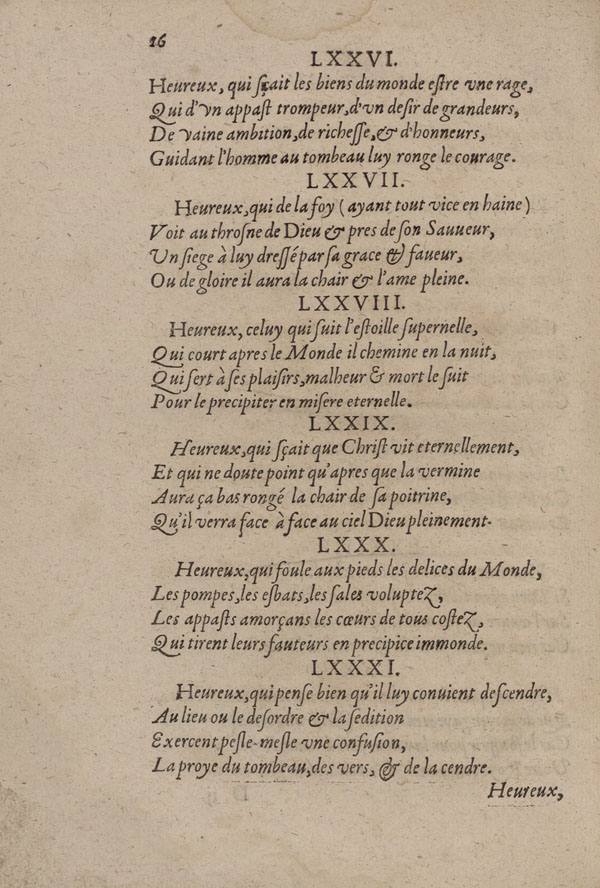 26
LXXVI.
Heureux, qui sçait les biens du monde estre vne rage,
Qui d'vn appast trompeur, d'vn desir de grandeurs,
De vaine ambition, de richesse, & d'honneurs,
Guidant l'homme au tombeau luy ronge le courage.
LXXVII.
Heureux, qui de la foy (ayant tout vice en haine)
Voit au throsne de Dieu & pres de son Sauueur,
Vn siege à luy dressé par sa grace & faueur,
Ou de gloire il aura la chair & l'ame pleine.
LXXVIII.
Heureux, celuy qui suit l'estoille supernelle,
Qui court apres le Monde il chemine en la nuit,
Qui sert à ses plaisirs, malheur & mort le suit
Pour le precipiter en misere eternelle.
LXXIX.
Heureux, qui sçait que Christ vit eternellement,
Et qui ne doute point qu'apres que la vermine
Aura ça bas rongé la chair de sa poitrine,
Qu'il verra face à face au ciel Dieu pleinement.
LXXX.
Heureux, qui foule aux pieds les delices du Monde,
Les pompes, les esbats, les sales voluptez,
Les appasts amorçans les cœurs de tous costez,
Qui tirent leurs fauteurs en precipice immonde.
LXXXI.
Heureux, qui pense bien qu'il luy conuient descendre,
Au lieu ou le desordre & la sedition
Exercent pesle-mesle vne confusion,
La proye du tombeau, des vers, & de la cendre.
Heureux,